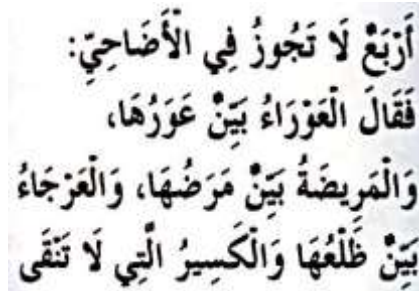 أَرْبَعٌ لَا تَجُوزُ فِي الْأَضَاحِيِّ:
فَقَالَ الْعَوْرَاءُ بَيِّنٌ عَوَرُهَا،
وَالْمَرِيضَةُ بَيِّنٌ مَرَضُهَا، وَالْعَرْجَاءُ
بَيِّنٌ ظَلْعُهَا وَالْكَسِيرُ الَّتِي لَا تَنْقَى